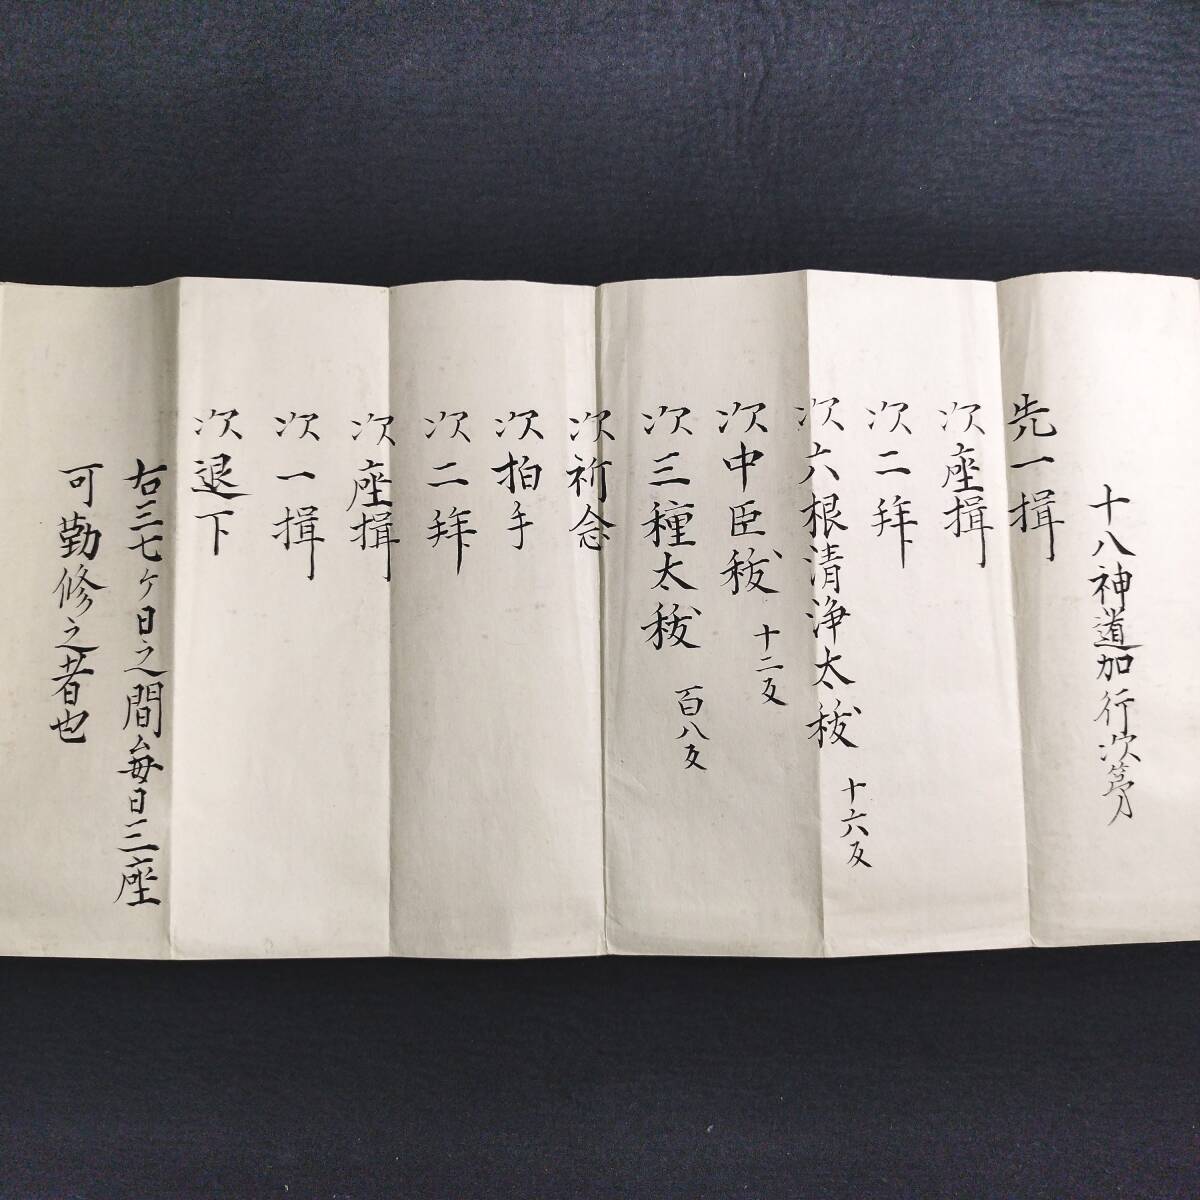 十八神道加行次第
先一揖
次座揖
次二拝
次六根清浄太祓 十六反
次中臣祓 十二反
次三種太祓 百八反
次祈念
次拍手
次二拝
次座揖
次一揖
次退下
右三七ケ日之間毎日三座
可勤修之者也